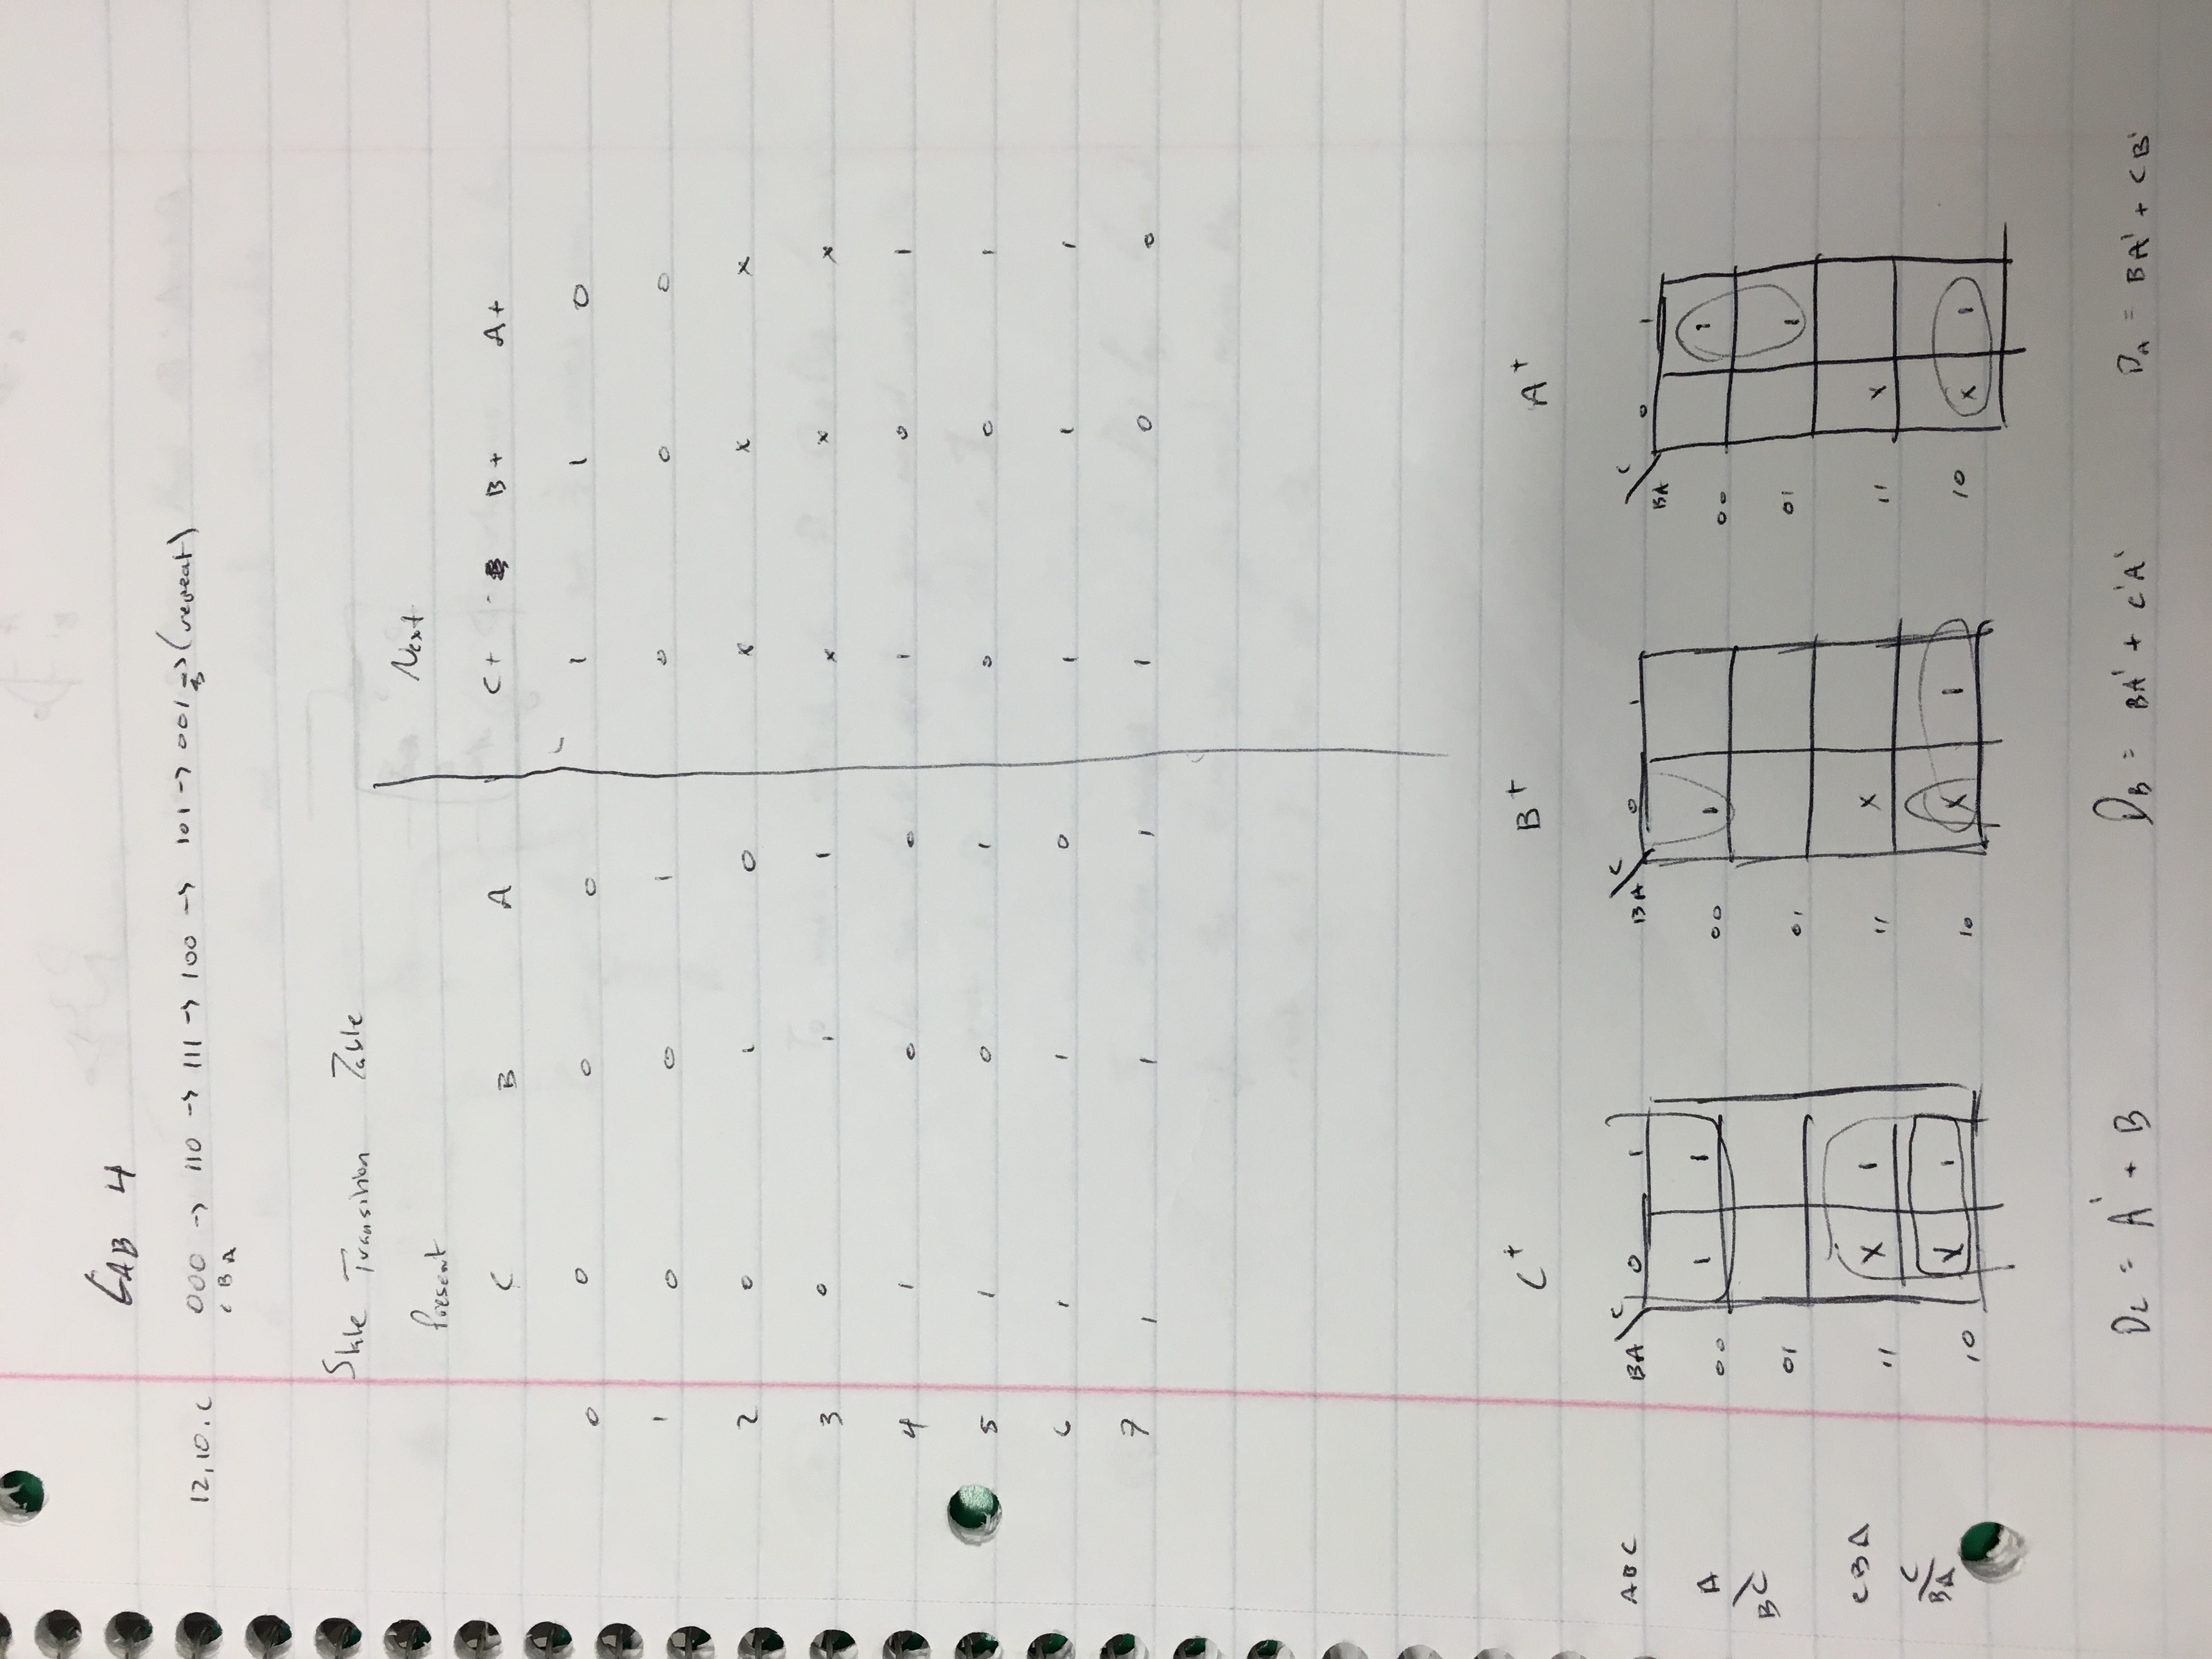 LAB 4
12.10.c 000 -> 110 -> 111 -> 100 -> 101 -> 001 -> (repeat)
C B A
State Transition Table
Present Next
C B A C+ B+ A+
0 0 0 0 1 1 0
1 0 0 1 0 0 0
2 0 1 0 x x x
3 0 1 1 x x x
4 1 0 0 1 0 1
5 1 0 1 0 0 1
6 1 1 0 1 1 1
7 1 1 1 1 0 0
C+ B+ A+
ABC BA\C 0 1 BA\C 0 1 BA\C 0 1
A 00 1 1 00 1 00 1
B\C 01 01 01 1
CBA 11 X 1 11 X 11 X
C
BA 10 X 1 10 X 1 10 X 1
Dc = A' + B DB = BA' + C'A' DA = BA' + CB'